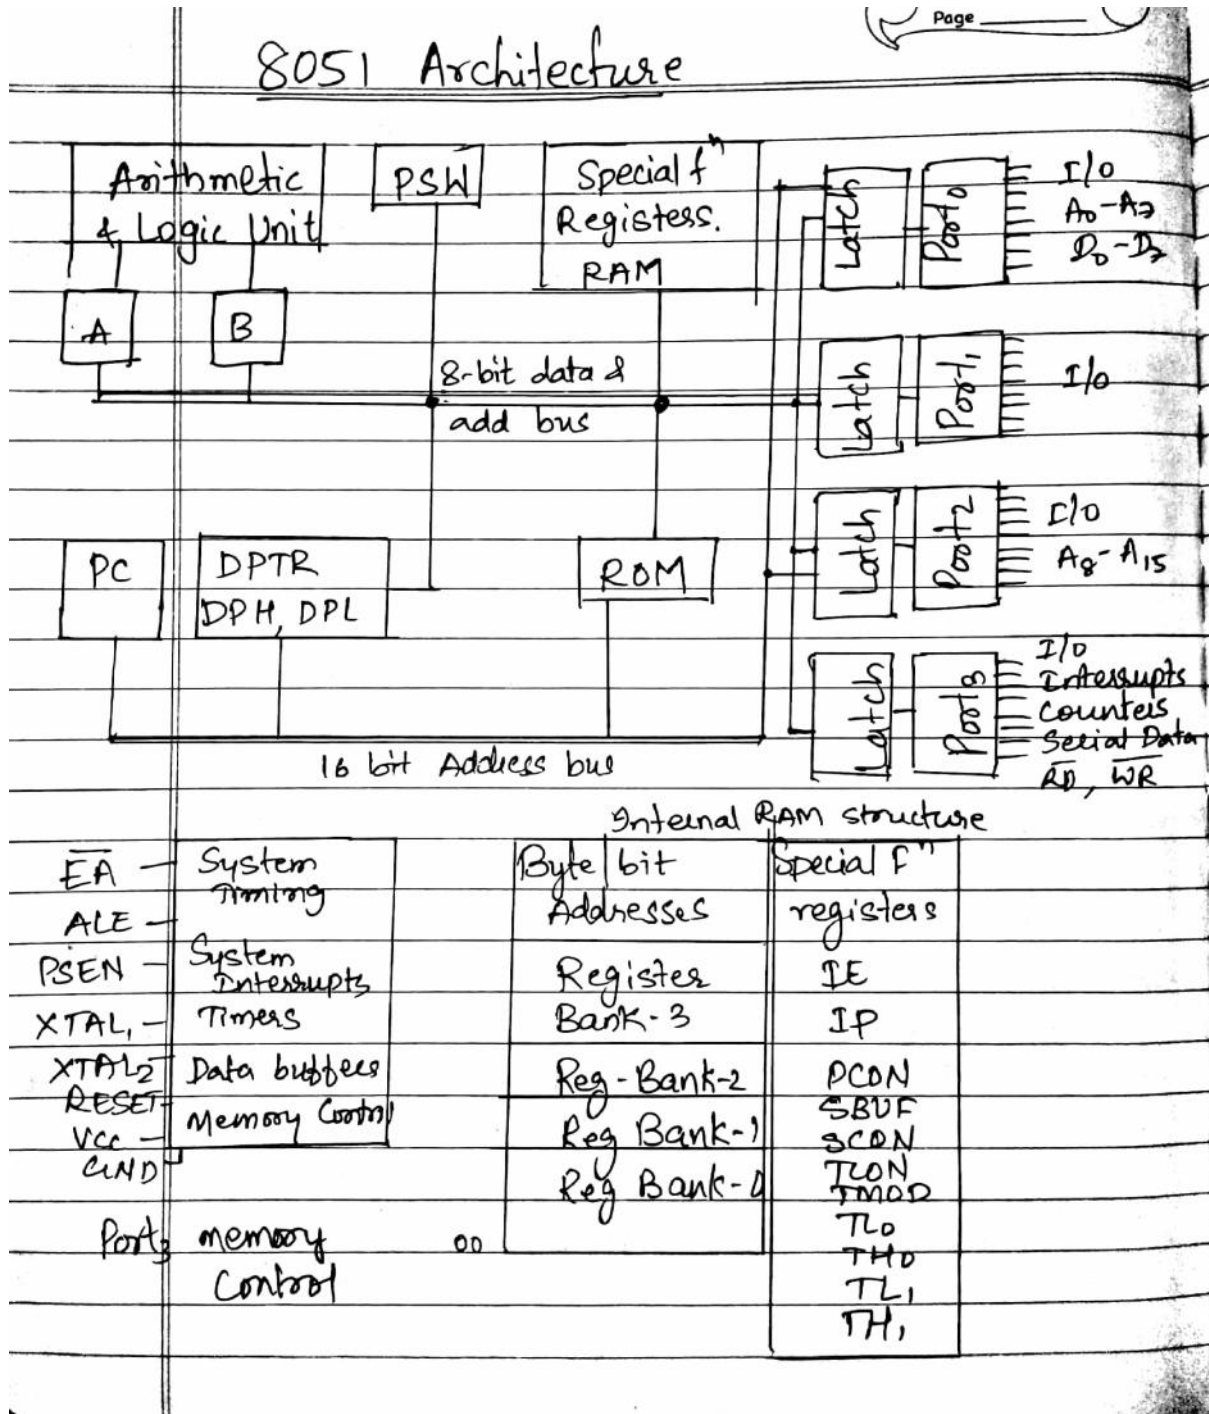 Page
8051 Architecture
Arithmetic
& Logic Unit
PSW
Special fⁿ
Registers.
RAM
A
B
8-bit data &
add bus
Latch
Port0
I/O
A0-A7
D0-D7
Latch
Port1
I/O
Latch
Port2
I/O
A8-A15
Latch
Port3
I/O
Interrupts
Counters
Serial Data
R̅D̅, W̅R̅
PC
DPTR
DPH, DPL
ROM
16 bit Address bus
E̅A̅
ALE
PSEN
XTAL1
XTAL2
RESET
Vcc
GND
Port3
System
Timing
System
Interrupts
Timers
Data buffers
Memory Control
memory
Control
Internal RAM structure
Byte/bit
Addresses
Register
Bank-3
Reg-Bank-2
Reg Bank-1
Reg Bank-0
00
Special fⁿ
registers
IE
IP
PCON
SBUF
SCON
TCON
TMOD
TL0
TH0
TL1
TH1